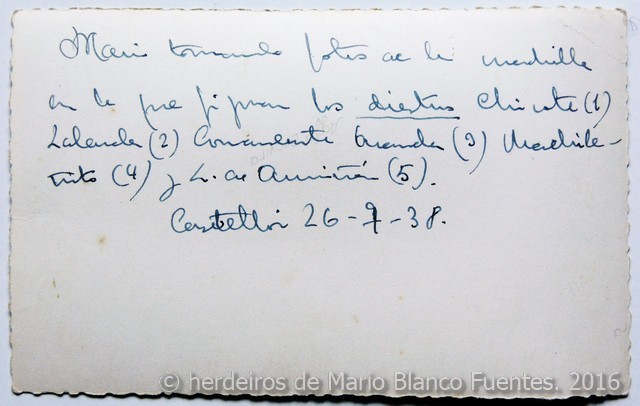 Mario tomando fotos de la cuadrilla
en la que figuran los diestros Chicote (1)
Lalanda (2) Comandante Aranda (3) Machile-
rito (4) y L. de Armiñán (5).
Castellón 26-9-38.
© herdeiros de Mario Blanco Fuentes. 2016